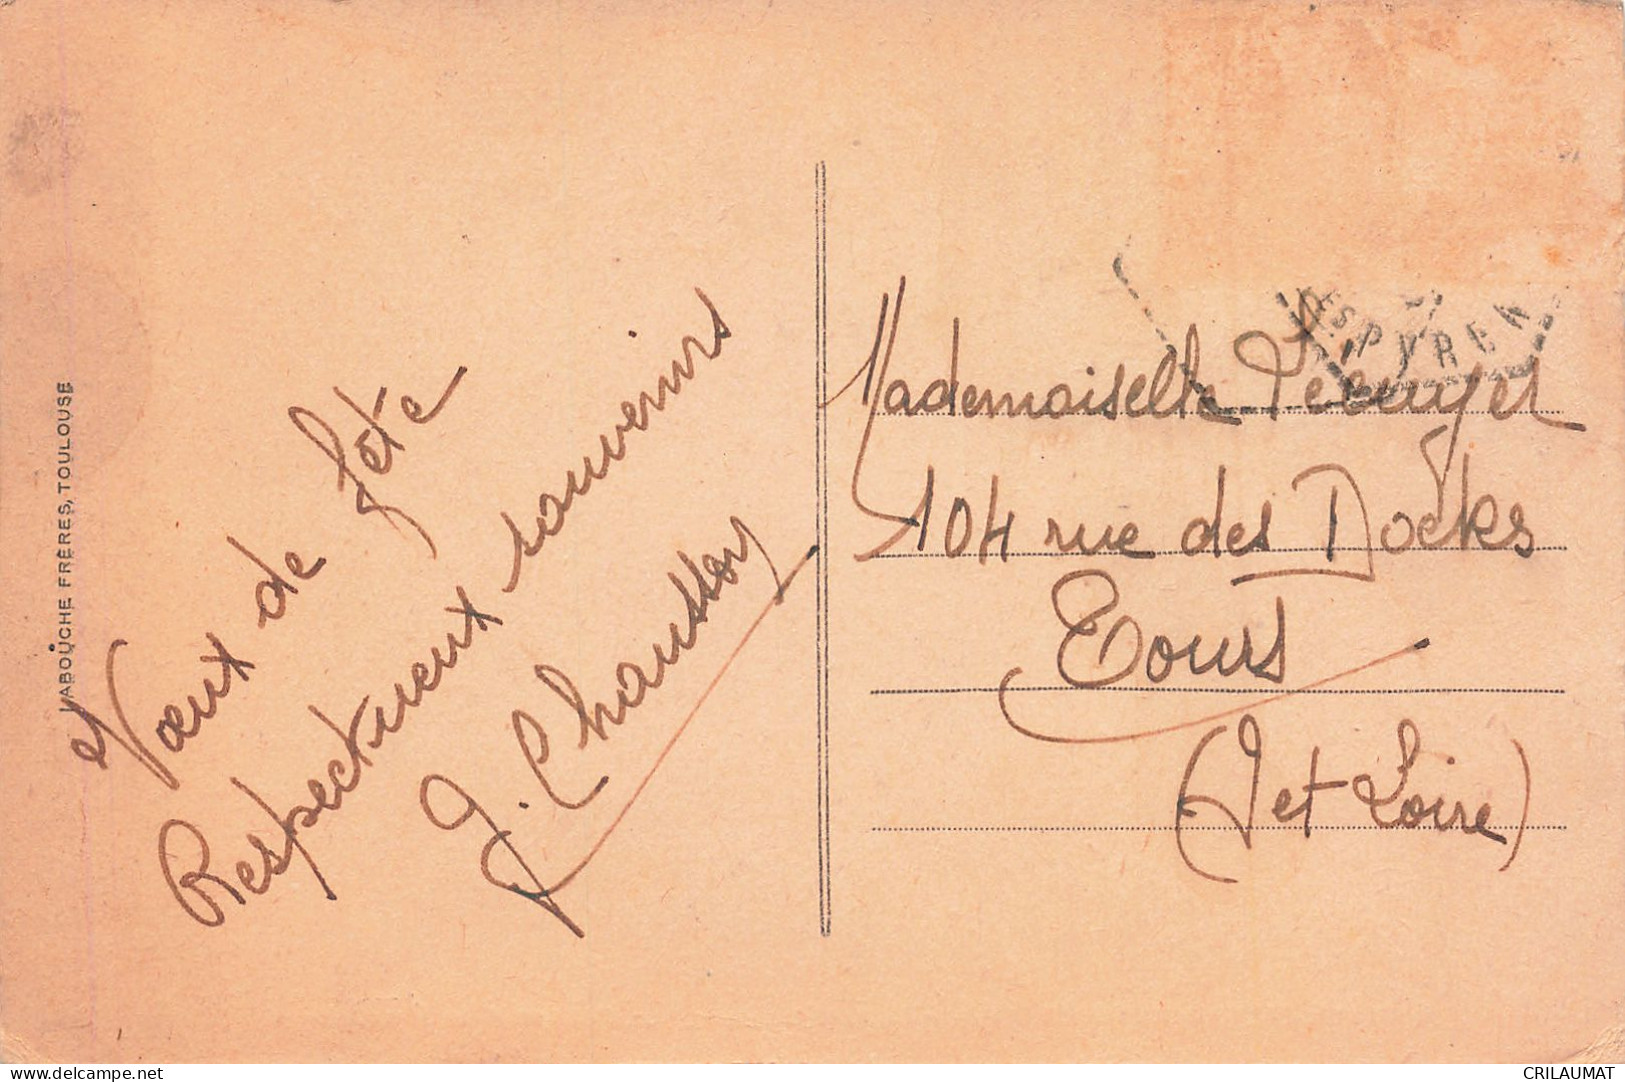 LABOUCHE FRÈRES, TOULOUSE
Vœux de fête
Respectueux souvenirs
J. Chausson
Mademoiselle
104 rue des Docks
Tours
(I et Loire)
delcampe.net
CRILAUMAT